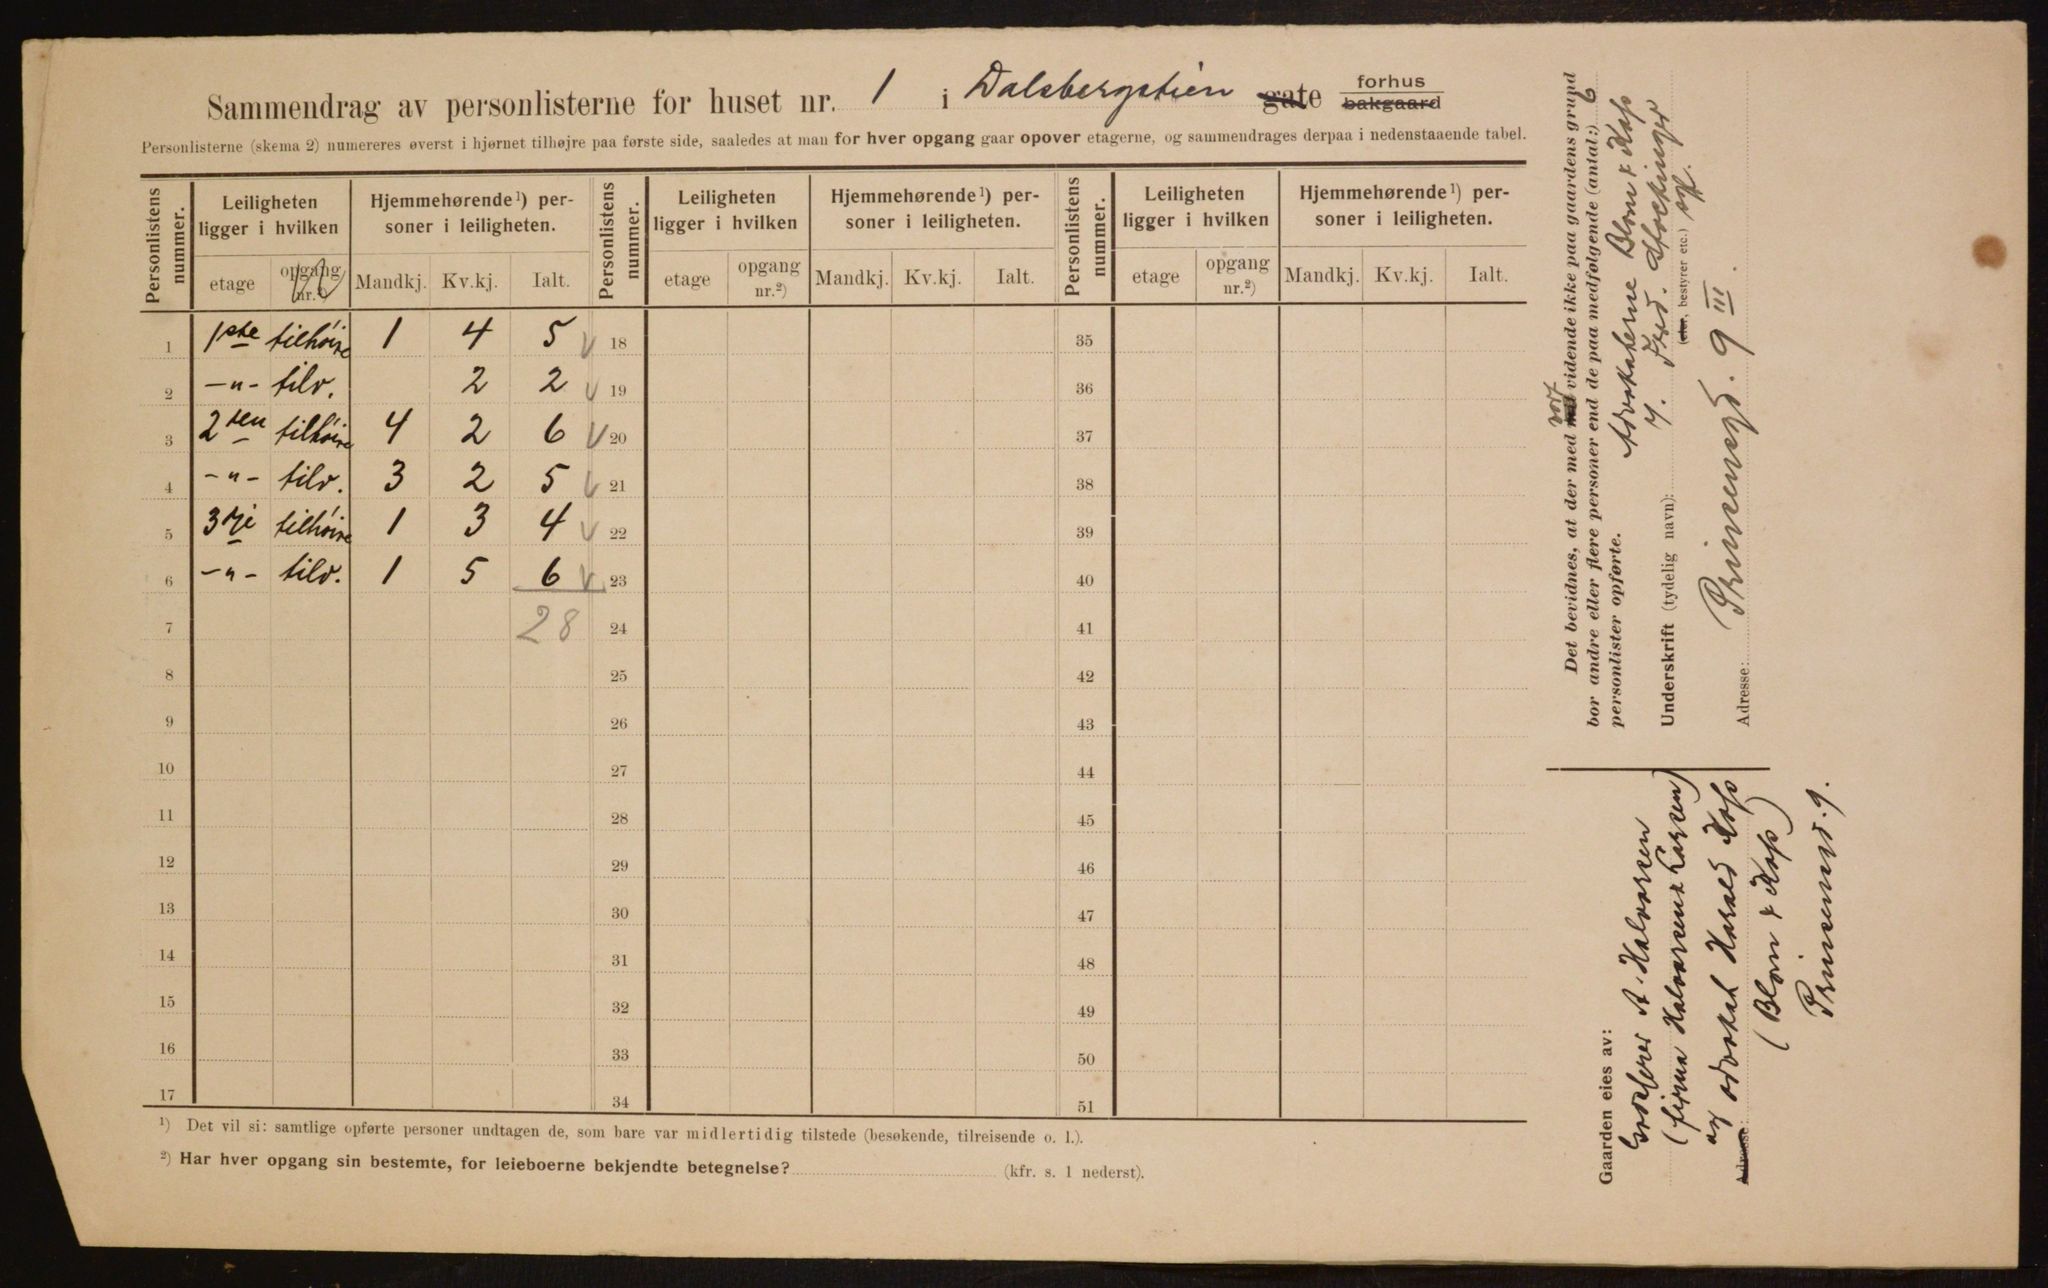 Sammendrag av personlisterne for huset nr. 1 i Dalsbergstien gate forhus bakgaard
Personlisterne (skema 2) numereres øverst i hjørnet tilhøjre paa første side, saaledes at man for hver opgang gaar opover etagerne, og sammendrages derpaa i nedenstaaende tabel.
Personlistens nummer. Leiligheten ligger i hvilken Hjemmehørende¹) personer i leiligheten. Personlistens nummer. Leiligheten ligger i hvilken Hjemmehørende¹) personer i leiligheten. Personlistens nummer. Leiligheten ligger i hvilken Hjemmehørende¹) personer i leiligheten.
etage opgang nr.²) Mandkj. Kv.kj. Ialt. etage opgang nr.²) Mandkj. Kv.kj. Ialt. etage opgang nr.²) Mandkj. Kv.kj. Ialt.
1 1ste tilhøire 1 4 5 18 35
2 -"- tilv. 2 2 19 36
3 2den tilhøire 4 2 6 20 37
4 -"- tilv. 3 2 5 21 38
5 3dje tilhøire 1 3 4 22 39
6 -"- tilv. 1 5 6 23 40
7 28 24 41
8 25 42
9 26 43
10 27 44
11 28 45
12 29 46
13 30 47
14 31 48
15 32 49
16 33 50
17 34 51
¹) Det vil si: samtlige opførte personer undtagen de, som bare var midlertidig tilstede (besøkende, tilreisende o. l.).
²) Har hver opgang sin bestemte, for leieboerne bekjendte betegnelse? (kfr. s. 1 nederst).
Det bevidnes, at der med vort vidende ikke paa gaardens grund
bor andre eller flere personer end de paa medfølgende (antal:) 6
personlister opførte.
Advokaterne Blom & Koss
Underskrift (tydelig navn):
(eier, bestyrer etc.)
Adresse: Prinsensgd. 9 III.
Gaarden eies av:
A. Halvorsen
(firma Halvorsen & Larsen)
og advokat Harald Koss
Adresse:
(Blom & Koss)
Prinsensgd. 9.